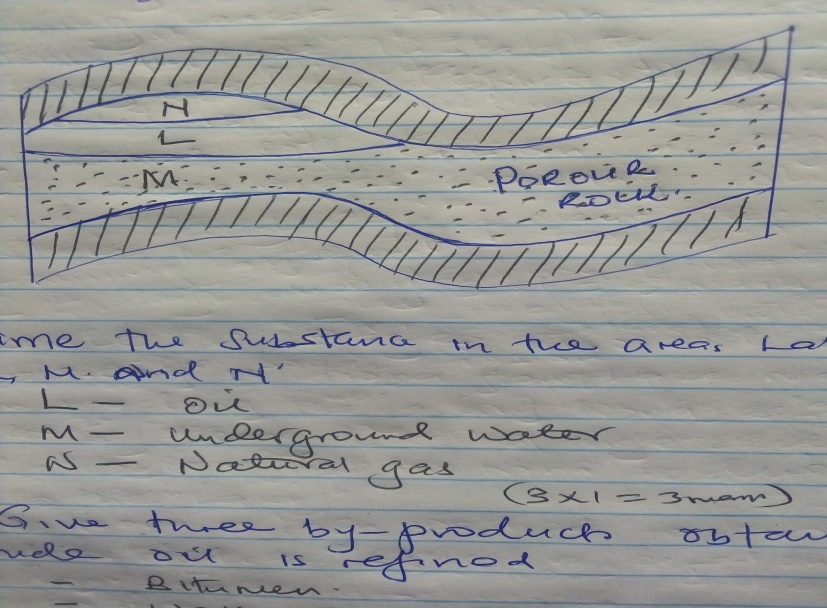 N
L
M
POROUS
ROCK.
me the Substance in the areas La
M. and N'
L - Oil
M - underground water
N - Natural gas
(3 x 1 = 3
Give three by-products obtai
ude oil is refined
- Bitumen.